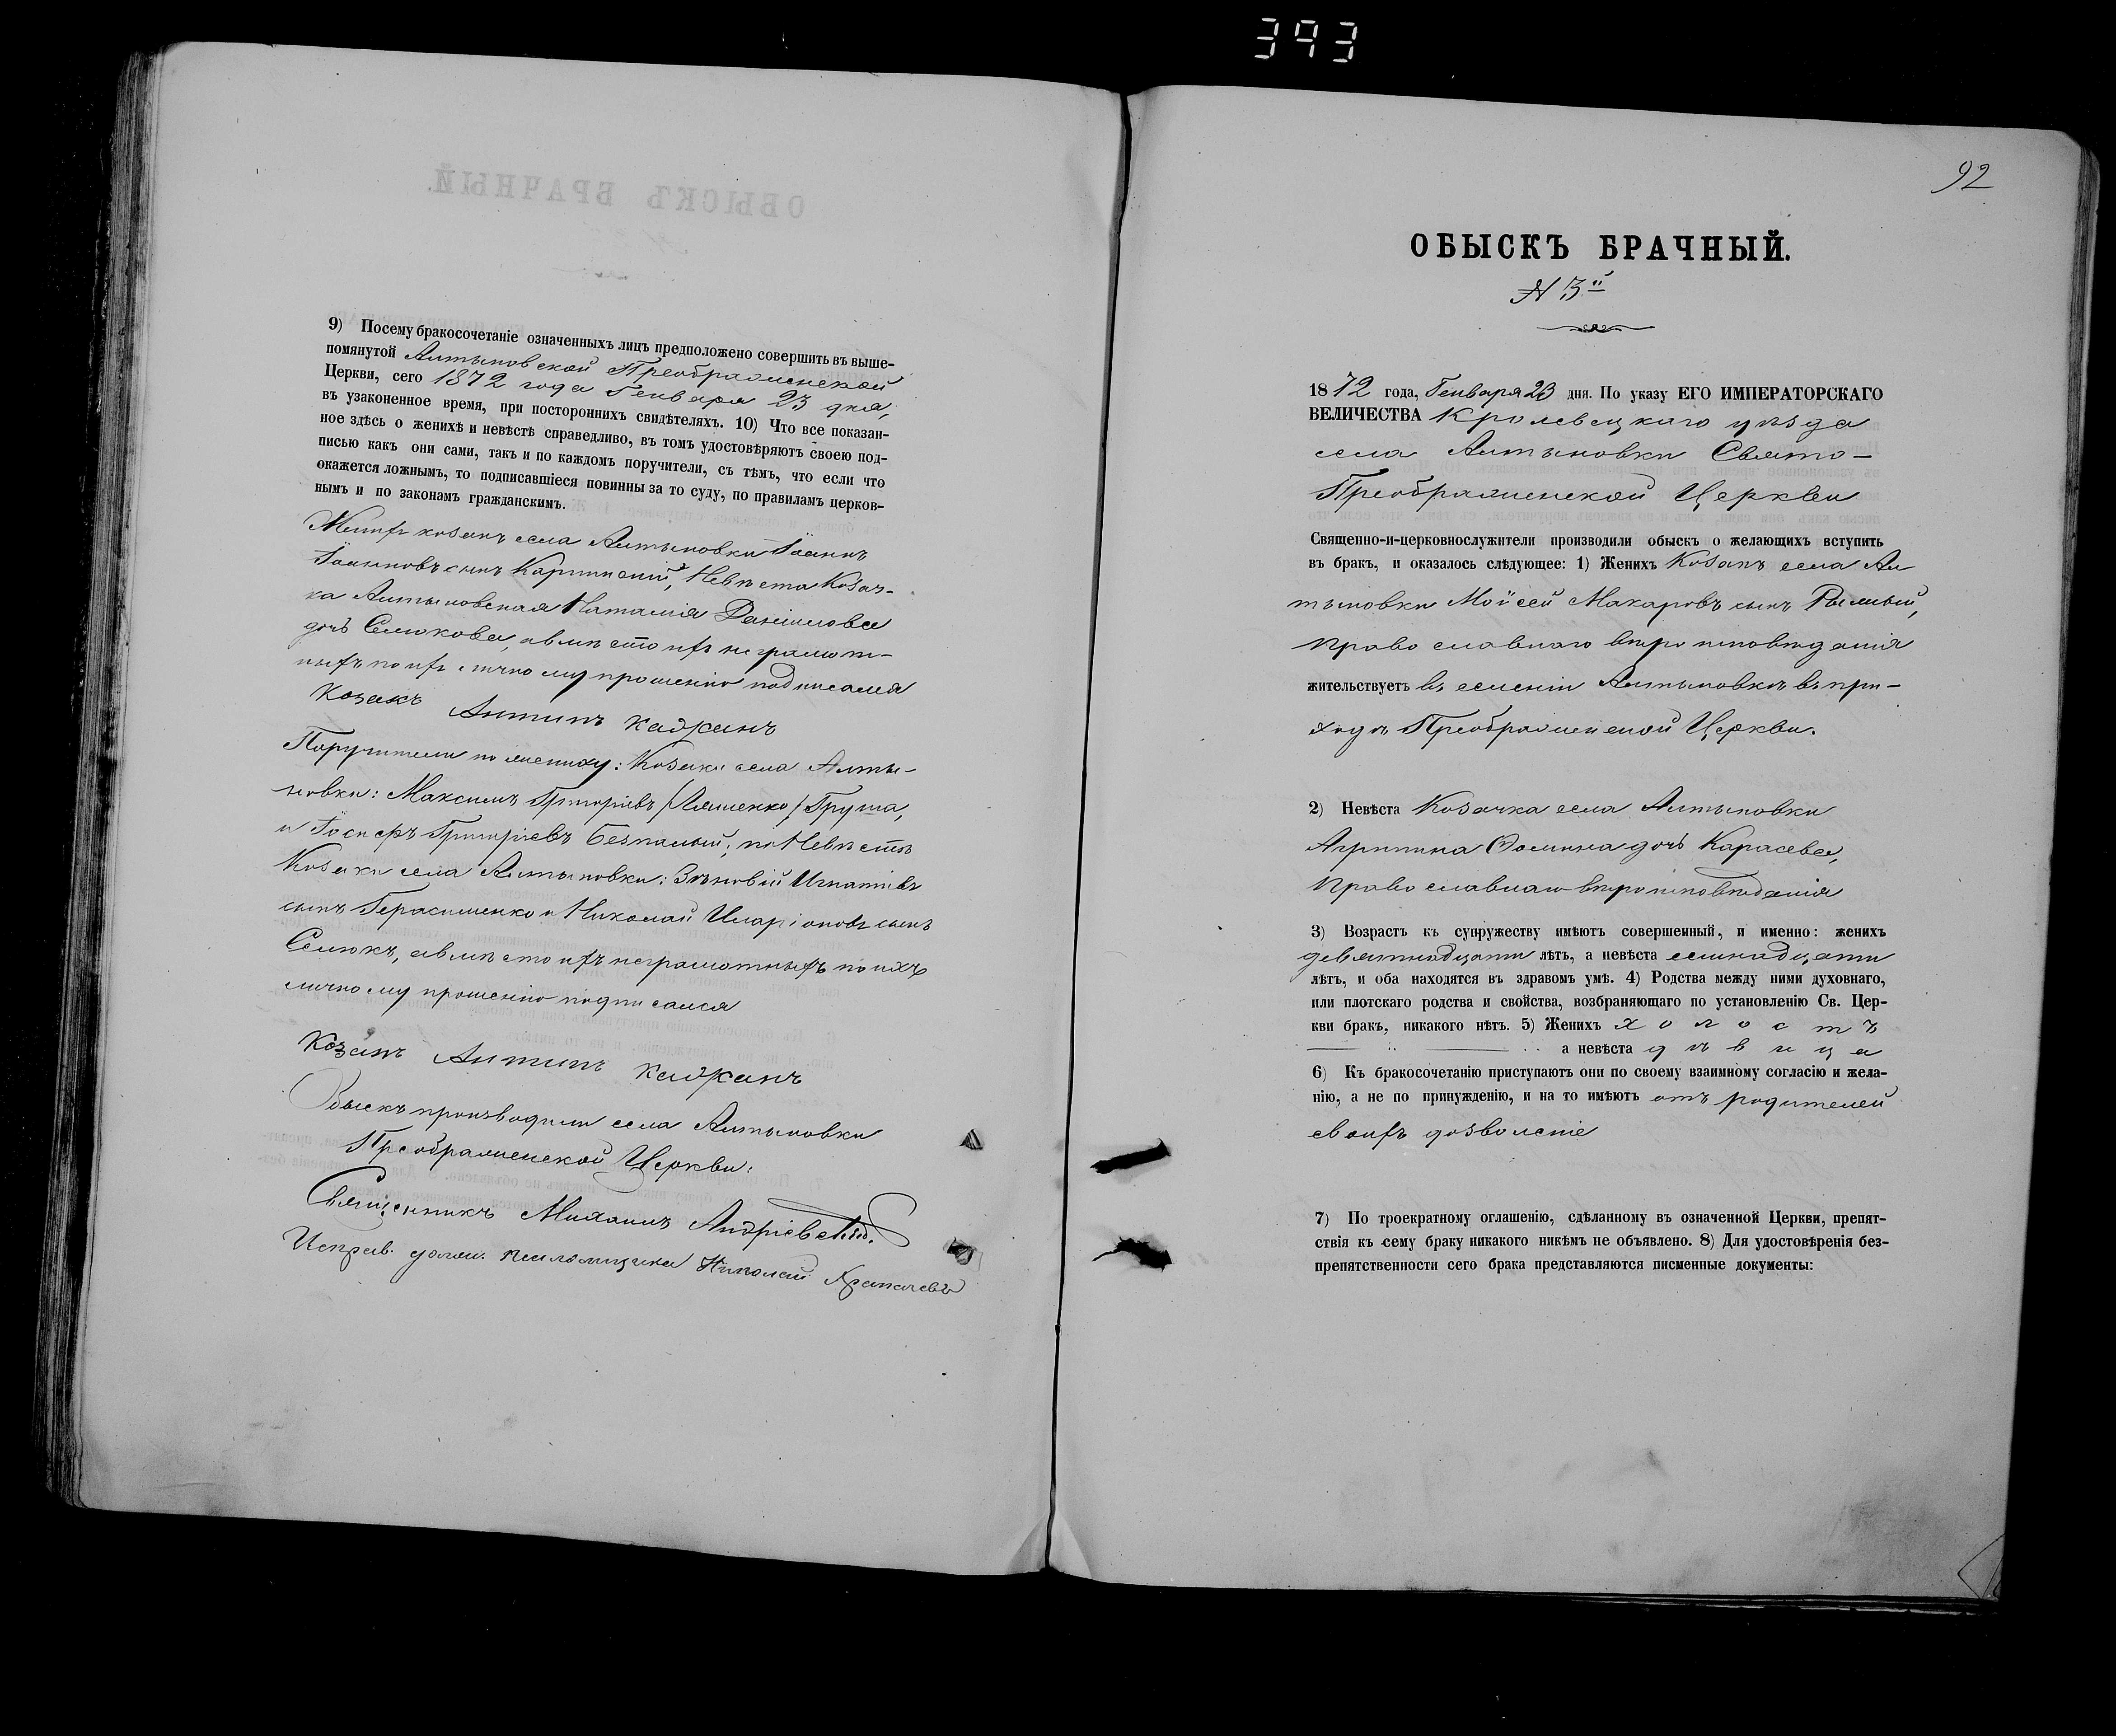 393
9) Посему бракосочетаніе означенныхъ лицъ предположено совершить въ выше-
помянутой Алтыновской Преображенской
Церкви, сего 1872 года Генваря 23 дня,
въ узаконенное время, при постороннихъ свидѣтеляхъ. 10) Что все показан-
ное здѣсь о женихѣ и невѣстѣ справедливо, въ томъ удостовѣряютъ своею под-
писью какъ они сами, такъ и по каждомъ поручители, съ тѣмъ, что если что
окажется ложнымъ, то подписавшіеся повинны за то суду, по правиламъ церков-
нымъ и по законамъ гражданскимъ.
Женихъ козакъ села Алтыновки Іоаннъ
Іоанновъ сынъ Карпинскій, Невѣста Козач-
ка Алтыновская Наталія Даніилова
дочь Селюкова, а вмѣсто ихъ неграмот-
ныхъ по ихъ личному прошенію подписался
Козакъ Антипъ Каджанъ
Поручители по жениху: Козаки села Алты-
новки: Максимъ Григоріевъ /Ляшенко/ Груша,
и Іосифъ Григоріевъ Безпалый; по Невѣстѣ
Козаки села Алтыновки: Зѣновій Игнатіевъ
сынъ Герасименко и Николай Иларіоновъ сынъ
Селюкъ, а вмѣсто ихъ неграмотныхъ по ихъ
личному прошенію подписался
Козакъ Антипъ Каджанъ
Обыскъ производили села Алтыновки
Преображенской Церкви:
Священникъ Михаилъ
Исправ. должн. псаломщика Николай
92
ОБЫСКЪ БРАЧНЫЙ.
№ 3й
1872 года, Генваря 23 дня. По указу ЕГО ИМПЕРАТОРСКАГО
ВЕЛИЧЕСТВА Кролевецкаго уѣзда
села Алтыновки Свято-
Преображенской Церкви
Священно-и-церковнослужители производили обыскъ о желающихъ вступить
въ бракъ, и оказалось слѣдующее: 1) Женихъ Козакъ села Ал
тыновки Моѵсей Макаровъ сынъ Рыжый,
Православнаго вѣроисповѣданія
жительствуетъ въ селеніи Алтыновкѣ въ при-
ходѣ Преображенской Церкви.
2) Невѣста Козачка села Алтыновки
Агрипина Ѳомина дочь Карасева,
Православнаго вѣроисповѣданія
3) Возрастъ къ супружеству имѣютъ совершенный, и именно: женихъ
девятнадцати лѣтъ, а невѣста семнадцати
лѣтъ, и оба находятся въ здравомъ умѣ. 4) Родства между ними духовнаго,
или плотскаго родства и свойства, возбраняющаго по установленію Св. Цер-
кви бракъ, никакого нѣтъ. 5) Женихъ холостъ
а невѣста дѣвица
6) Къ бракосочетанію приступаютъ они по своему взаимному согласію и жела-
нію, а не по принужденію, и на то имѣютъ отъ родителей
своихъ дозволеніе
7) По троекратному оглашенію, сдѣланному въ означенной Церкви, препят-
ствія къ сему браку никакого никѣмъ не объявлено. 8) Для удостовѣренія без-
препятственности сего брака представляются писменные документы: